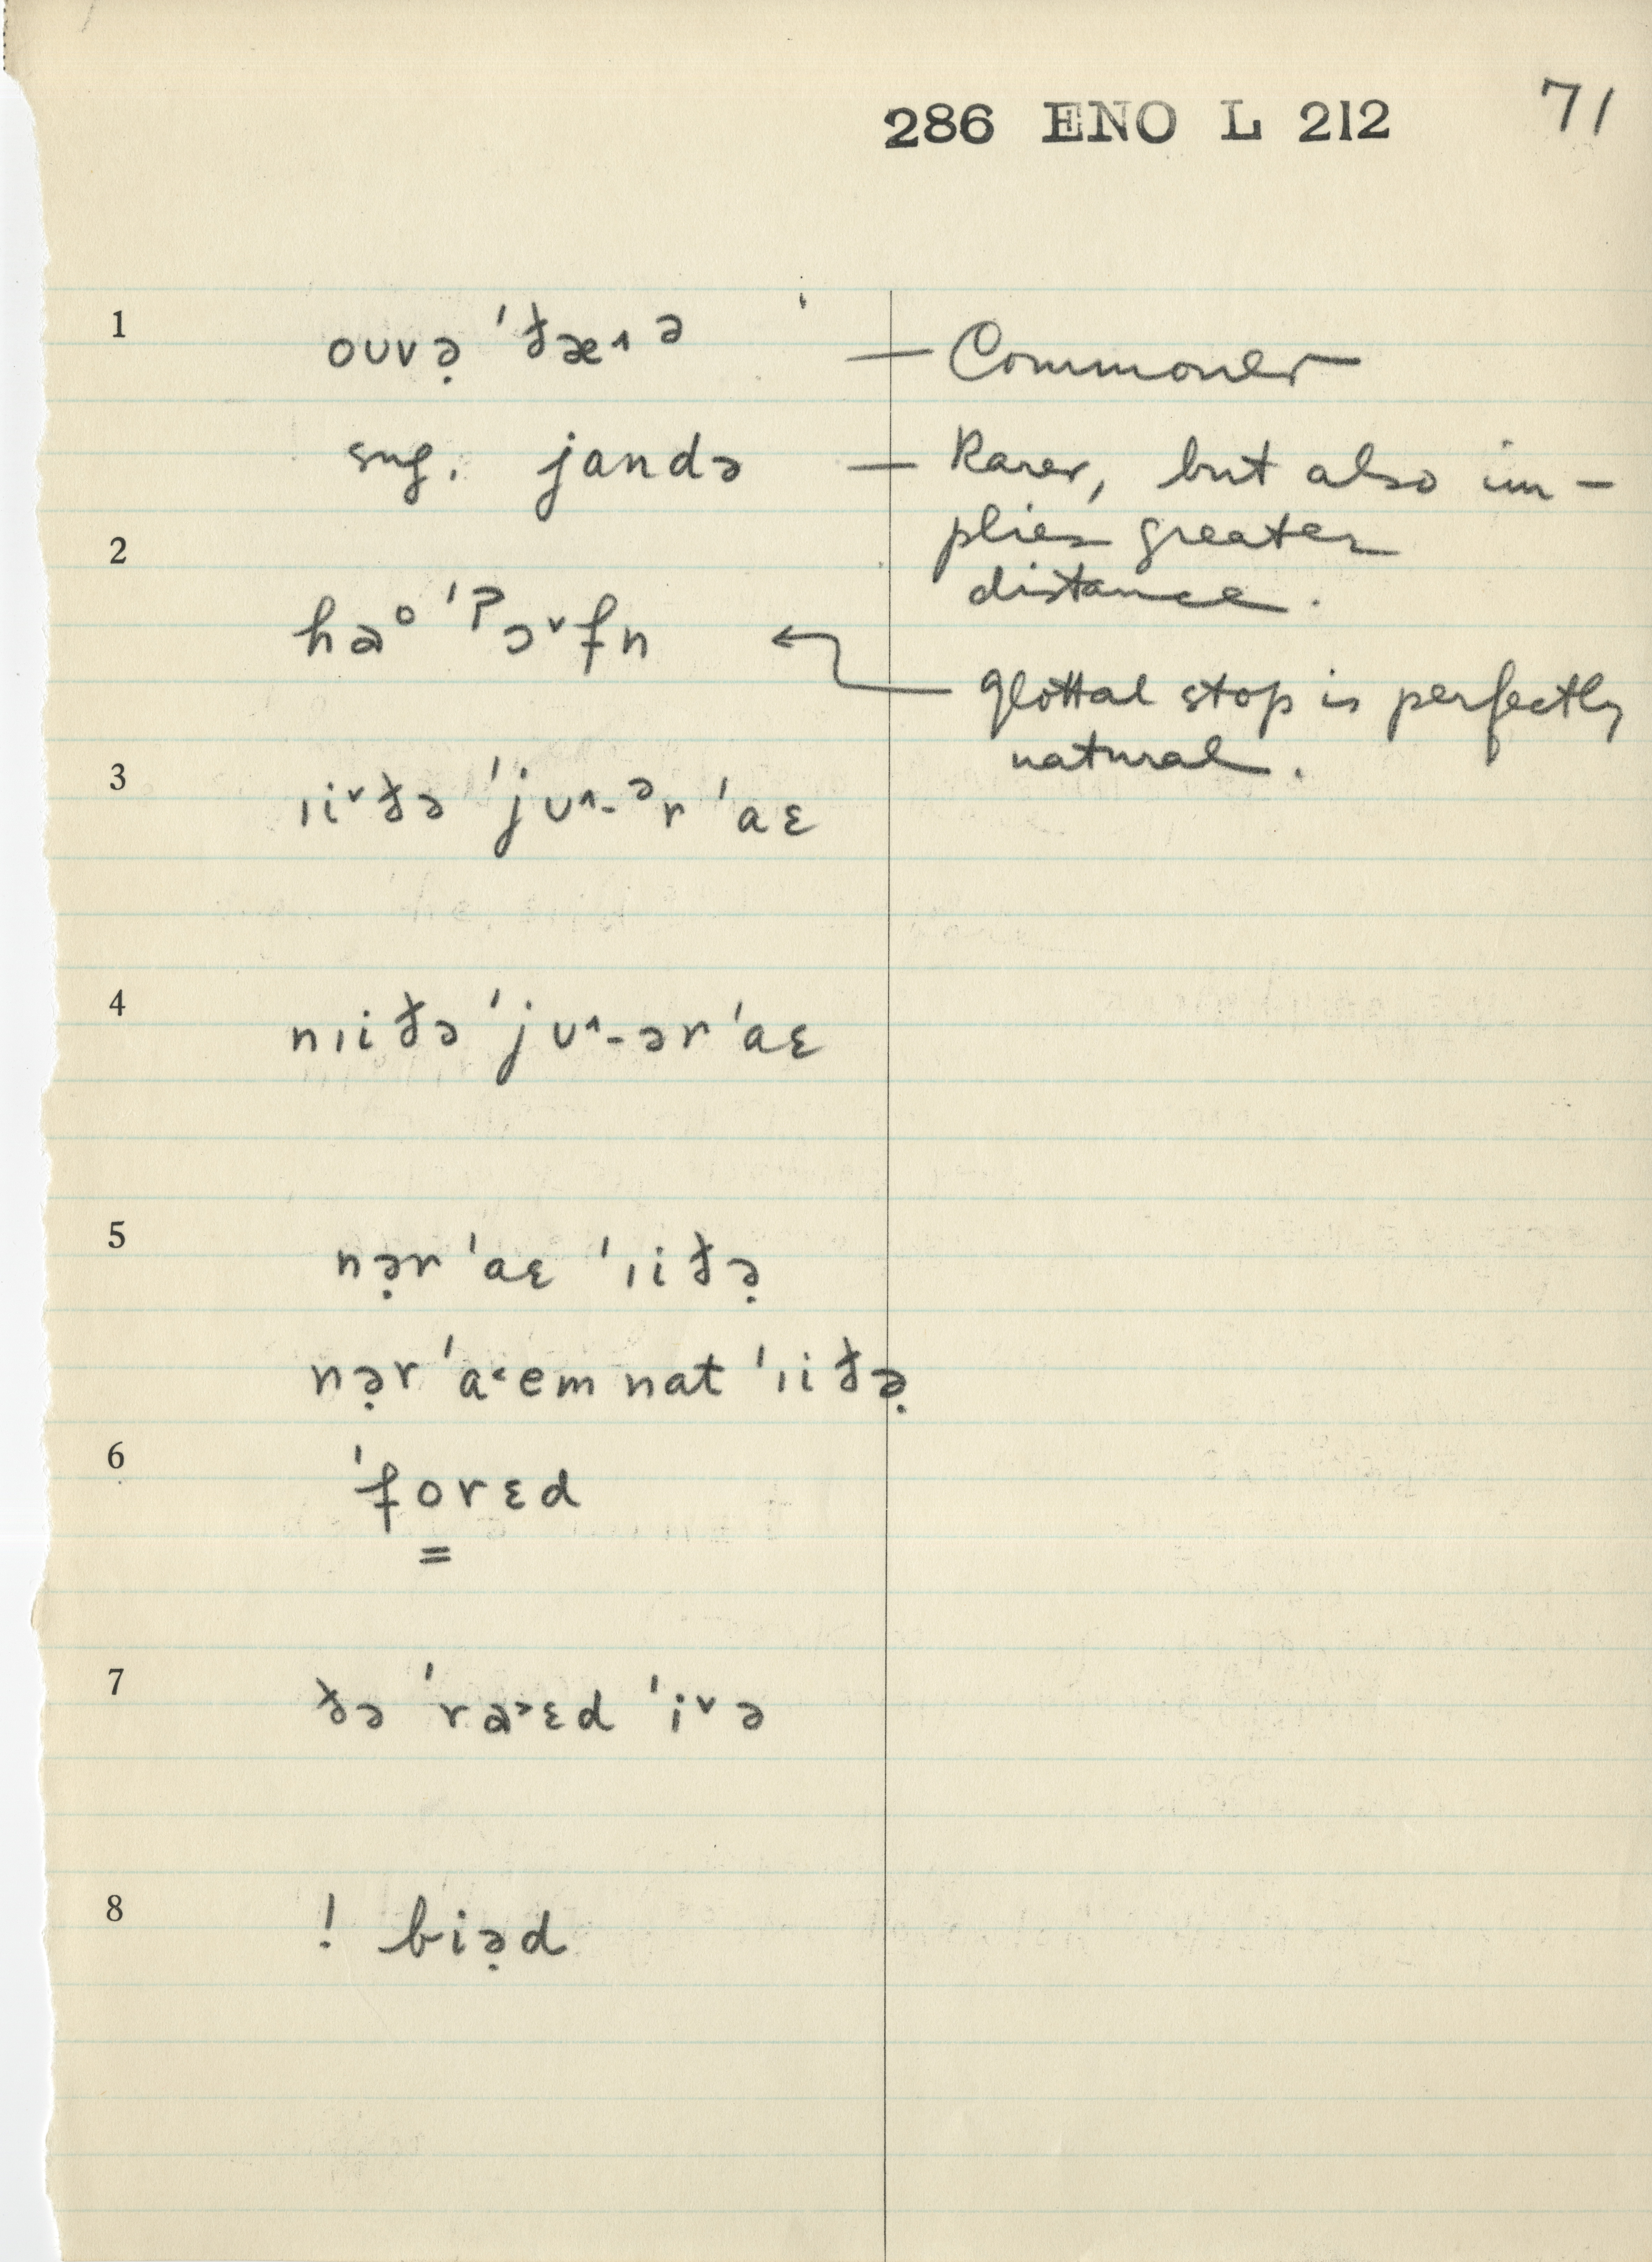 286 ENO L 212
71
1 oʊvə̣ ˈðæ˄ᵊ — Commoner
sug. jandə — Rarer, but also im-
plies greater
distance.
2 haᵒ ˈʔɔ˅fn ← glottal stop is perfectly
natural.
3 ɪi˅ðə ˈjʊ˄-ᵊr ˈaɛ
4 nɪiðə ˈjʊ˄-ər ˈaɛ
5 nə̣r ˈaɛ ˈɪiðə̣
nə̣r ˈa˂em nat ˈɪiðə̣
6 ˈforɛd
=
7 ðə ˈra˃ɛd ˈi˅ə
8 ! biə̣d